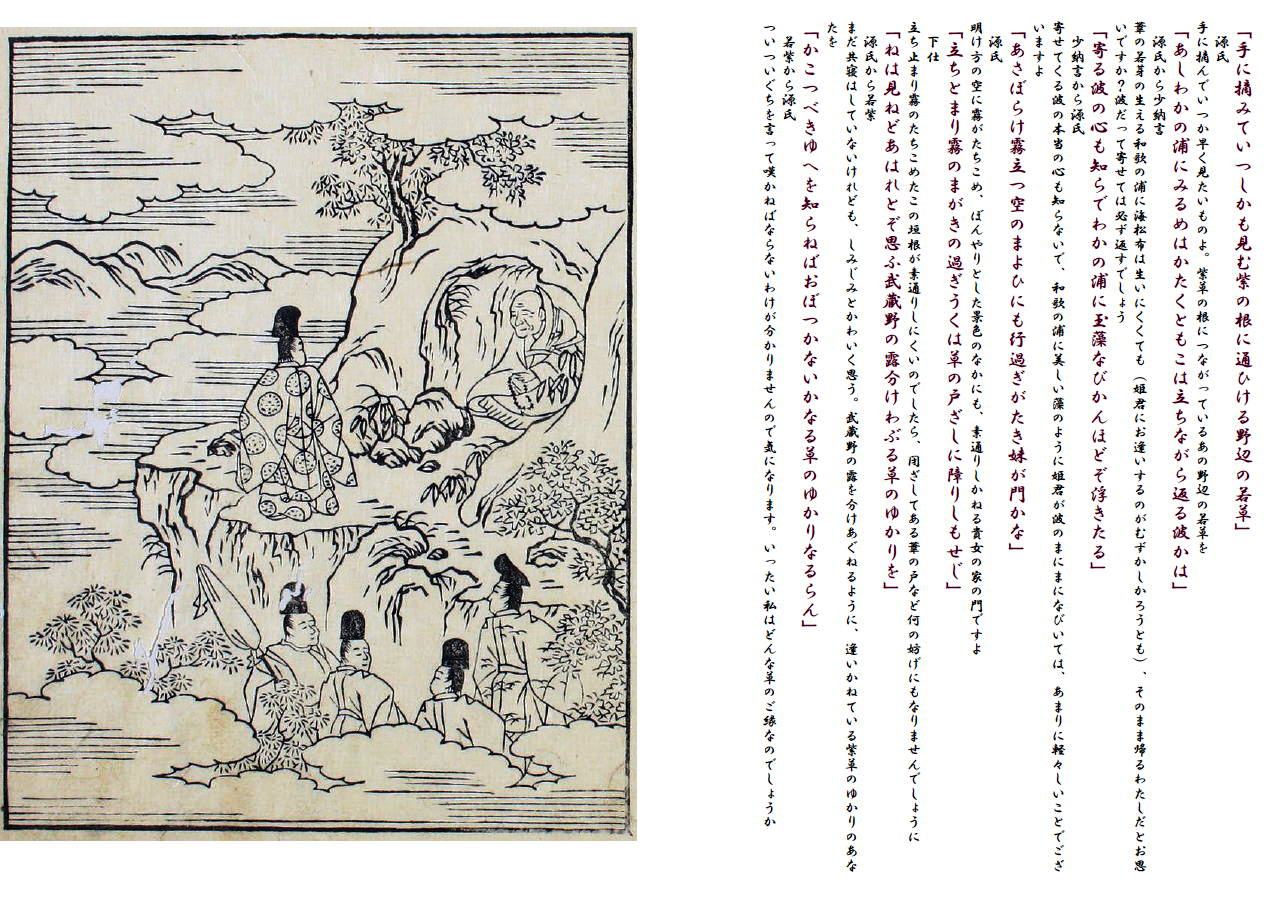 「手に摘みていつしかも見む紫の根に通ひける野辺の若草」
源氏
手に摘んでいつか早く見たいものよ。紫草の根につながっているあの野辺の若草を
「あしわかの浦にみるめはかたくともこは立ちながら返る波かは」
源氏から少納言
葦の若芽の生える和歌の浦に海松布は生いにくくても（姫君にお逢いするのがむずかしかろうとも）、そのまま帰るわたしだとお思
いですか？波だって寄せては必ず返すでしょう
「寄る波の心も知らでわかの浦に玉藻なびかんほどぞ浮きたる」
少納言から源氏
寄せてくる波の本当の心も知らないで、和歌の浦に美しい藻のように姫君が波のまにまになびいては、あまりに軽々しいことでござ
いますよ
「あさぼらけ霧立つ空のまよひにも行過ぎがたき妹が門かな」
源氏
明け方の空に霧がたちこめ、ぼんやりとした景色のなかにも、素通りしかねる貴女の家の門ですよ
「立ちとまり霧のまがきの過ぎうくは草の戸ざしに障りしもせじ」
下仕
立ち止まり霧のたちこめたこの垣根が素通りしにくいのでしたら、閉ざしてある葦の戸など何の妨げにもなりませんでしょうに
「ねは見ねどあはれとぞ思ふ武蔵野の露分けわぶる草のゆかりを」
源氏から若紫
まだ共寝はしていないけれども、しみじみとかわいく思う。武蔵野の露を分けあぐねるように、逢いかねている紫草のゆかりのあな
たを
「かこつべきゆへを知らねばおぼつかないかなる草のゆかりなるらん」
若紫から源氏
ついついぐちを言って嘆かねばならないわけが分かりませんので気になります。いったい私はどんな草のご縁なのでしょうか